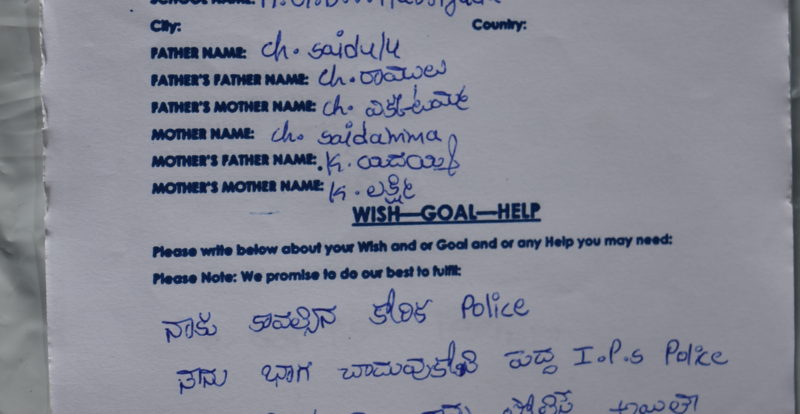 City: Country:
FATHER NAME: ch. saidulu
FATHER'S FATHER NAME: ch. రాములు
FATHER'S MOTHER NAME: ch.
MOTHER NAME: ch. saidamma
MOTHER'S FATHER NAME: K. యాదయ్య
MOTHER'S MOTHER NAME: K. లక్ష్మి
WISH—GOAL—HELP
Please write below about your Wish and or Goal and or any Help you may need:
Please Note: We promise to do our best to fulfil:
నాకు కావల్సిన కోరిక Police
నేను బాగ చదువుకోని పెద్ద I.P.S Police